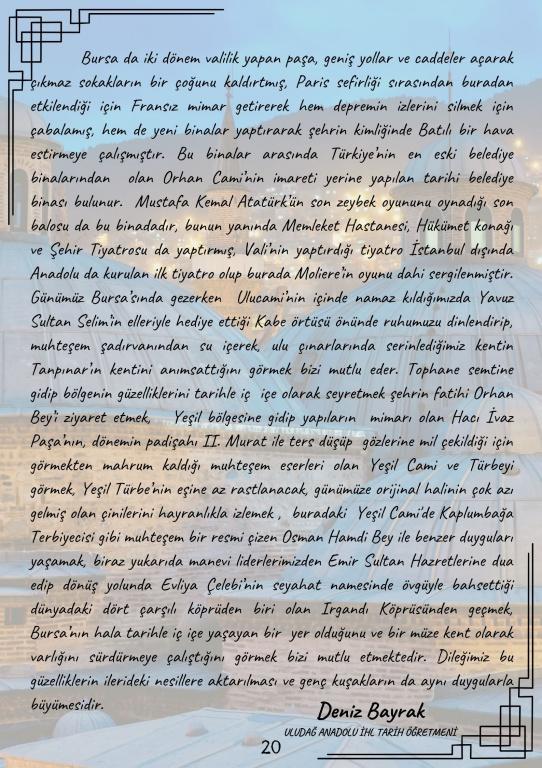 Bursa da iki dönem valilik yapan paşa, geniş yollar ve caddeler açarak
çıkmaz sokakların bir çoğunu kaldırtmış, Paris sefirliği sırasından buradan
etkilendiği için Fransız mimar getirerek hem depremin izlerini silmek için
çabalamış, hem de yeni binalar yaptırarak şehrin kimliğinde Batılı bir hava
estirmeye çalışmıştır. Bu binalar arasında Türkiye'nin en eski belediye
binalarından olan Orhan Cami'nin imareti yerine yapılan tarihi belediye
binası bulunur. Mustafa Kemal Atatürk'ün son zeybek oyununu oynadığı son
balosu da bu binadadır, bunun yanında Memleket Hastanesi, Hükümet konağı
ve Şehir Tiyatrosu da yaptırmış, Vali'nin yaptırdığı tiyatro İstanbul dışında
Anadolu da kurulan ilk tiyatro olup burada Moliere'in oyunu dahi sergilenmiştir.
Günümüz Bursa'sında gezerken Ulucami'nin içinde namaz kıldığımızda Yavuz
Sultan Selim'in elleriyle hediye ettiği Kabe örtüsü önünde ruhumuzu dinlendirip,
muhteşem şadırvanından su içerek, ulu çınarlarında serinlediğimiz kentin
Tanpınar'ın kentini anımsattığını görmek bizi mutlu eder. Tophane semtine
gidip bölgenin güzelliklerini tarihle iç içe olarak seyretmek şehrin fatihi Orhan
Bey'i ziyaret etmek, Yeşil bölgesine gidip yapıların mimarı olan Hacı İvaz
Paşa'nın, dönemin padişahı II. Murat ile ters düşüp gözlerine mil çekildiği için
görmekten mahrum kaldığı muhteşem eserleri olan Yeşil Cami ve Türbeyi
görmek, Yeşil Türbe'nin eşine az rastlanacak, günümüze orijinal halinin çok azı
gelmiş olan çinilerini hayranlıkla izlemek , buradaki Yeşil Cami'de Kaplumbağa
Terbiyecisi gibi muhteşem bir resmi çizen Osman Hamdi Bey ile benzer duyguları
yaşamak, biraz yukarıda manevi liderlerimizden Emir Sultan Hazretlerine dua
edip dönüş yolunda Evliya Çelebi'nin seyahat namesinde övgüyle bahsettiği
dünyadaki dört çarşılı köprüden biri olan Irgandı Köprüsünden geçmek,
Bursa'nın hala tarihle iç içe yaşayan bir yer olduğunu ve bir müze kent olarak
varlığını sürdürmeye çalıştığını görmek bizi mutlu etmektedir. Dileğimiz bu
güzelliklerin ilerideki nesillere aktarılması ve genç kuşakların da aynı duygularla
büyümesidir.
Deniz Bayrak
ULUDAĞ ANADOLU İHL TARİH ÖĞRETMENİ
20